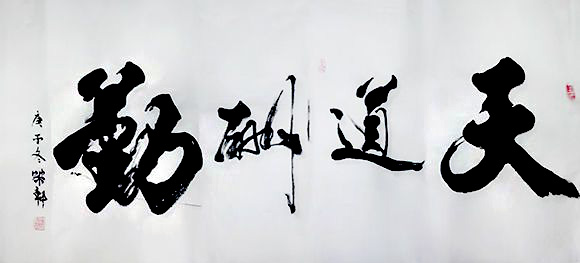 天道酬勤
庚子冬